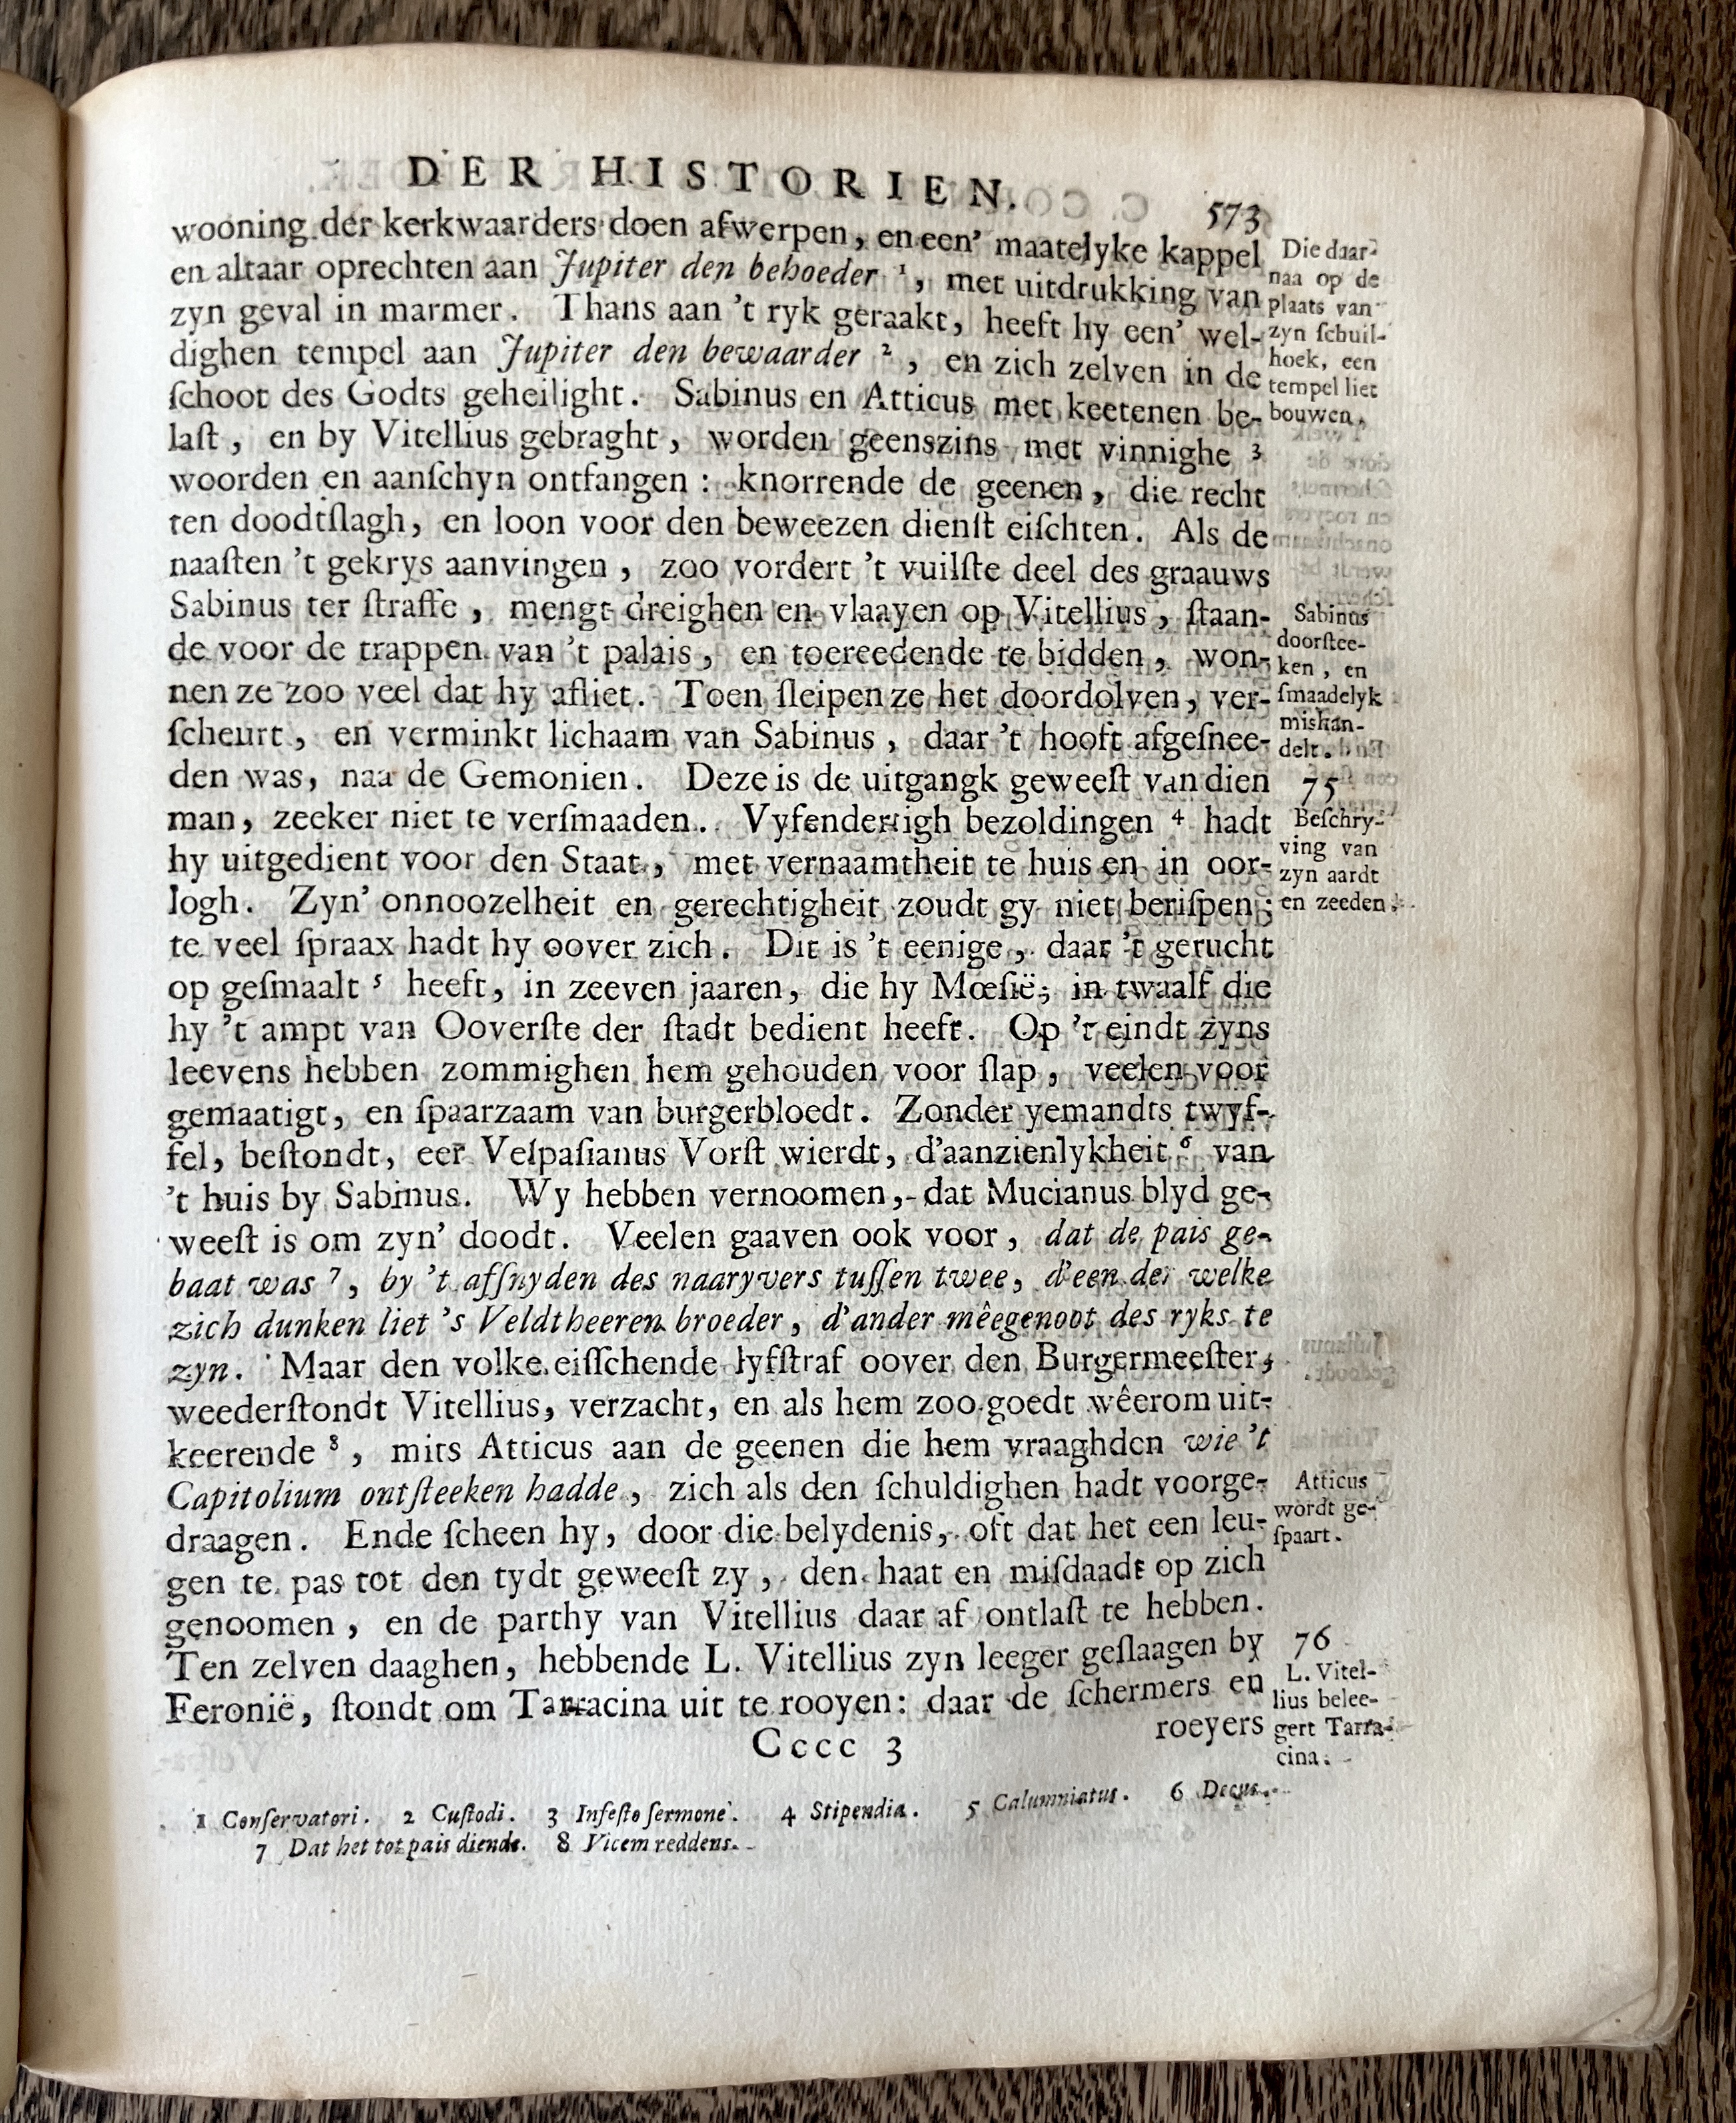 DER HISTORIEN.
573
wooning der kerkwaarders doen afwerpen, en een' maatelyke kappel
en altaar oprechten aan Jupiter den behoeder ¹, met uitdrukking van
zyn geval in marmer. Thans aan 't ryk geraakt, heeft hy een' wel-
dighen tempel aan Jupiter den bewaarder ², en zich zelven in de
ſchoot des Godts geheilight. Sabinus en Atticus met keetenen be-
laſt, en by Vitellius gebraght, worden geenszins met vinnighe ³
woorden en aanſchyn ontfangen: knorrende de geenen, die recht
ten doodtſlagh, en loon voor den beweezen dienſt eiſchten. Als de
naaſten 't gekrys aanvingen, zoo vordert 't vuilſte deel des graauws
Sabinus ter ſtraffe, mengt dreighen en vlaayen op Vitellius, ſtaan-
de voor de trappen van 't palais, en toereedende te bidden, won-
nen ze zoo veel dat hy afliet. Toen ſleipen ze het doordolven, ver-
ſcheurt, en verminkt lichaam van Sabinus, daar 't hooft afgeſnee-
den was, naa de Gemonien. Deze is de uitgangk geweeſt van dien
man, zeeker niet te verſmaaden. Vyfendertigh bezoldingen ⁴ hadt
hy uitgedient voor den Staat, met vernaamtheit te huis en in oor-
logh. Zyn' onnoozelheit en gerechtigheit zoudt gy niet beriſpen;
te veel ſpraax hadt hy oover zich. Dit is 't eenige, daar 't gerucht
op geſmaalt ⁵ heeft, in zeeven jaaren, die hy Mœſië; in twaalf die
hy 't ampt van Ooverſte der ſtadt bedient heeft. Op 't eindt zyns
leevens hebben zommighen hem gehouden voor ſlap, veelen voor
gemaatigt, en ſpaarzaam van burgerbloedt. Zonder yemandts twyf-
fel, beſtondt, eer Veſpaſianus Vorſt wierdt, d'aanzienlykheit ⁶ van
't huis by Sabinus. Wy hebben vernoomen, dat Mucianus blyd ge-
weeſt is om zyn' doodt. Veelen gaaven ook voor, dat de pais ge-
baat was ⁷, by 't afſnyden des naaryvers tuſſen twee, d'een der welke
zich dunken liet 's Veldtheeren broeder, d'ander mêegenoot des ryks te
zyn. Maar den volke eiſſchende lyfſtraf oover den Burgermeeſter,
weederſtondt Vitellius, verzacht, en als hem zoo goedt wêerom uit-
keerende ⁸, mits Atticus aan de geenen die hem vraaghden wie 't
Capitolium ontſteeken hadde, zich als den ſchuldighen hadt voorge-
draagen. Ende ſcheen hy, door die belydenis, oft dat het een leu-
gen te pas tot den tydt geweeſt zy, den haat en miſdaadt op zich
genoomen, en de parthy van Vitellius daar af ontlaſt te hebben.
Ten zelven daaghen, hebbende L. Vitellius zyn leeger geſlaagen by
Feronië, ſtondt om Tarracina uit te rooyen: daar de ſchermers en
roeyers
Cccc 3
Die daar-
naa op de
plaats van
zyn ſchuil-
hoek, een
tempel liet
bouwen.
Sabinus
doorſtee-
ken, en
ſmaadelyk
mishan-
delt.
75
Beſchry-
ving van
zyn aardt
en zeeden.
Atticus
wordt ge-
ſpaart.
76
L. Vitel-
lius belee-
gert Tarra-
cina.
1 Conſervatori. 2 Cuſtodi. 3 Infeſto ſermone. 4 Stipendia. 5 Calumniatus. 6 Decus.
7 Dat het tot pais diende. 8 Vicem reddens.